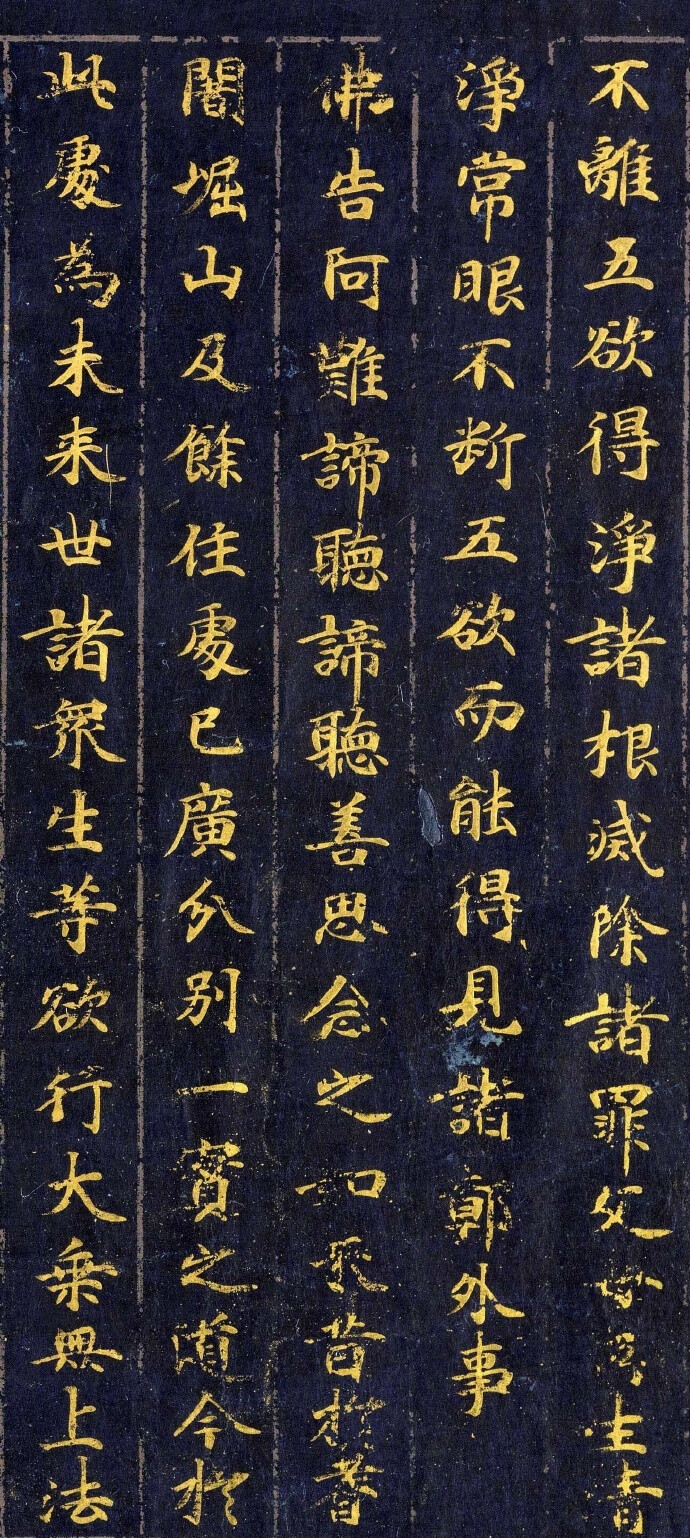 不離五欲得淨諸根滅除諸罪父母所生清
淨常眼不断五欲而能得見諸鄣外事
佛告阿難諦聽諦聽善思念之如來昔於耆
闍崛山及餘住處已廣分別一實之道今於
此處為未来世諸眾生等欲行大乗無上法